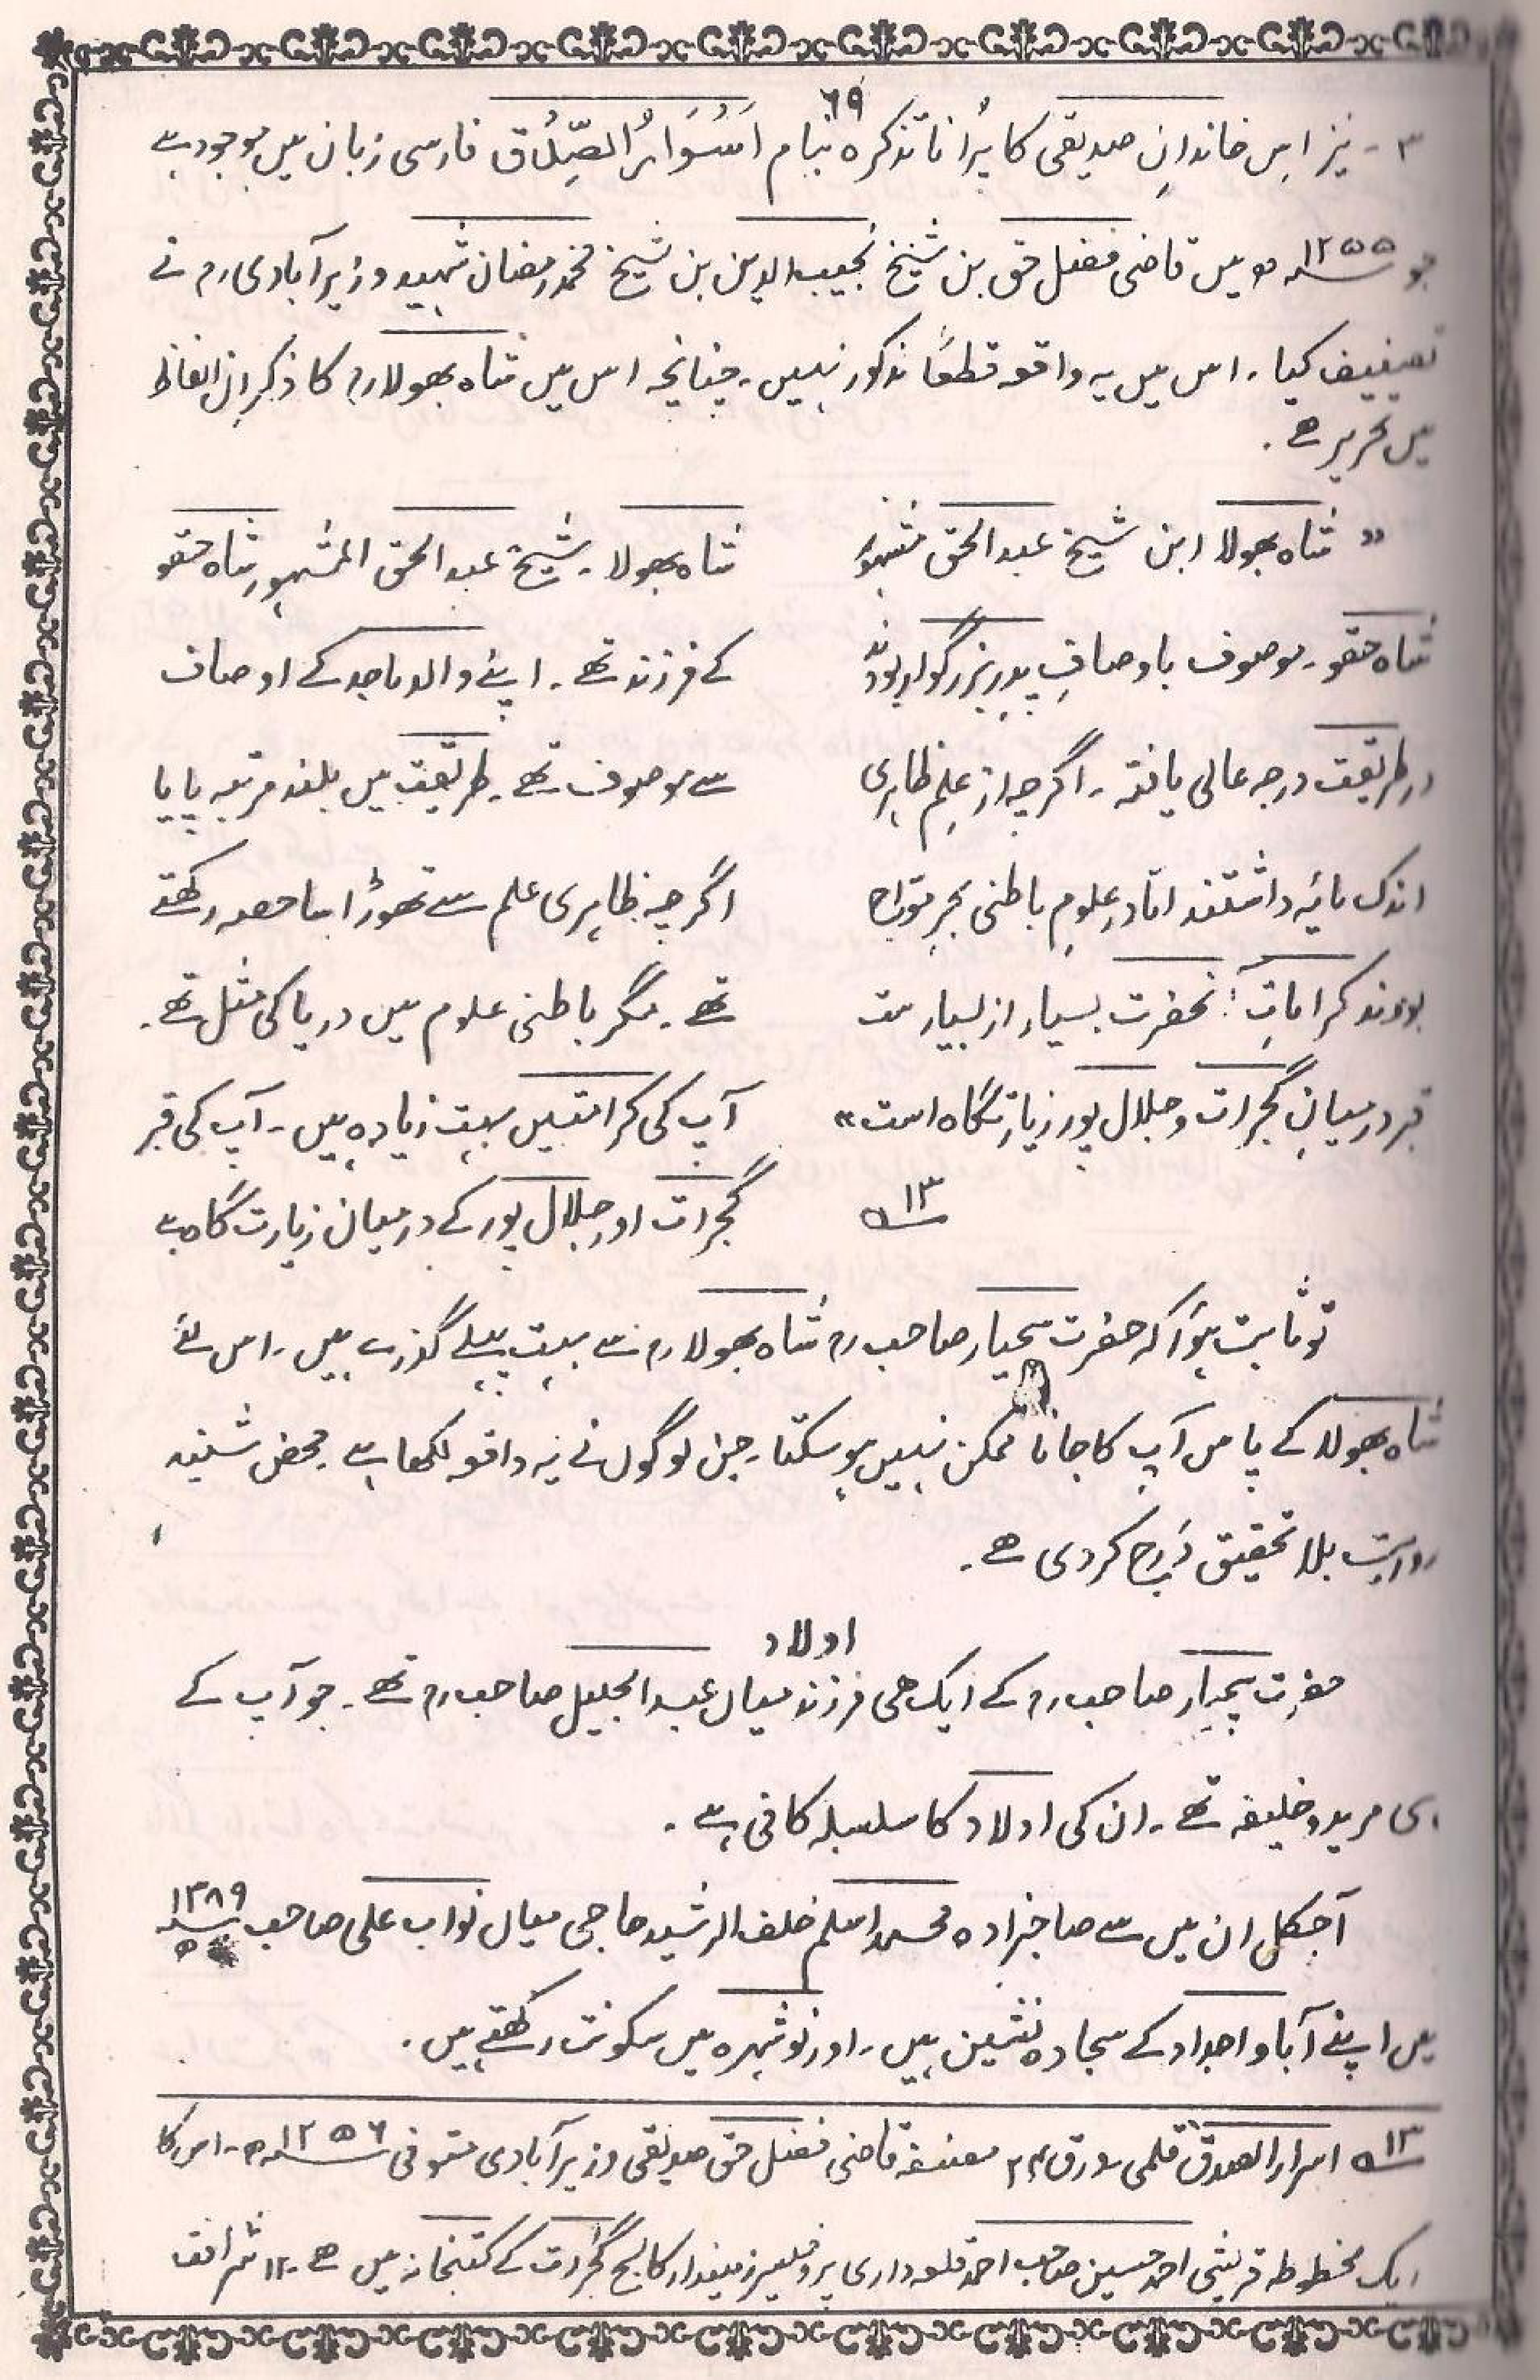 ۶۹
۳۔ نیز اس خاندانِ صدیقی کا پُرانا تذکرہ بنام اَسْوَارُ الصِّدْق فارسی زبان میں موجود ہے
جو ۱۲۵۵ھ میں قاضی فضل حق بن شیخ نجیب الدین بن شیخ محمد رمضان شہید وزیرآبادی رح نے
تصنیف کیا۔ اس میں یہ واقعہ قطعاً مذکور نہیں۔ چنانچہ اس میں شاہ بھولا رح کا ذکر اِن الفاظ
میں تحریر ھے۔
" شاہ بھولا ابن شیخ عبد الحق مشہور
شاہ حقو۔ موصوف باوصافِ پدرِ بزرگوار بودند
در طریقت درجہ عالی یافتہ۔ اگرچہ از علمِ ظاہری
اندک مایہ داشتند امّا در علومِ باطنی بحرِ موّاج
بودند کراماتِ آنحضرت بسیار از بسیار ست
قبر درمیانِ گجرات و جلال پور زیارتگاہ است"
۱۳ھ
شاہ بھولا۔ شیخ عبد الحق المشہور شاہ حقو
کے فرزند تھے۔ اپنے والد ماجد کے اوصاف
سے موصوف تھے۔ طریقت میں بلند مرتبہ پایا
اگرچہ ظاہری علم سے تھوڑا سا حصہ رکھتے
تھے۔ مگر باطنی علوم میں دریا کی مثل تھے۔
آپ کی کرامتیں بہت زیادہ ہیں۔ آپ کی قبر
گجرات اور جلال پور کے درمیان زیارت گاہ ہے
تو ثابت ہوا کہ حضرت سچیار صاحب رح شاہ بھولا رح سے بہت پہلے گذرے ہیں۔ اس لئے
شاہ بھولا کے پاس آپ کا جانا ممکن نہیں ہو سکتا۔ جن لوگوں نے یہ واقعہ لکھا ہے محض شنید
روایت بلا تحقیق دَرج کر دی ھے۔
اولاد
حضرت سچیار صاحب رح کے ایک ھی فرزند میاں عبد الجلیل صاحب رح تھے۔ جو آپ کے
ہی مرید و خلیفہ تھے۔ ان کی اولاد کا سلسلہ کافی ہے۔
آجکل ان میں سے صاحبزادہ محمد اسلم خلف الرشید حاجی میاں نواب علی صاحب ۱۳۸۹ھ
میں اپنے آبا و اجداد کے سجادہ نشین ہیں۔ اور نوشہرہ میں سکونت رکھتے ہیں۔
۱۳ھ اسرار الصدق قلمی ورق ۲۴ مصنفہ قاضی فضل حق صدیقی وزیرآبادی متوفی ۱۲۵۶ھ۔ اس کا
ایک مخطوطہ قریشی احمد حسین صاحب احمد قلعہ داری پروفیسر زمیندار کالج گجرات کے کتبخانہ میں ھے۔ ۱۲ شرافت